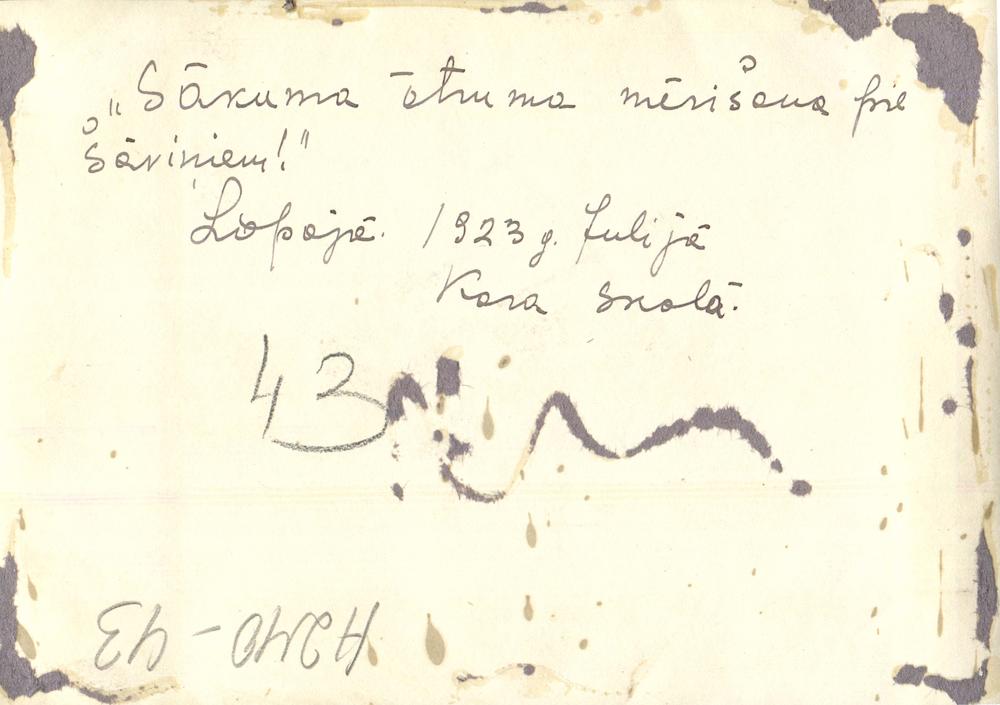 „Sākuma ātruma mērišana pie
šāviņiem!"
Lepājā. 1923 g. Julijā
Kara skolā.
43
A240-43